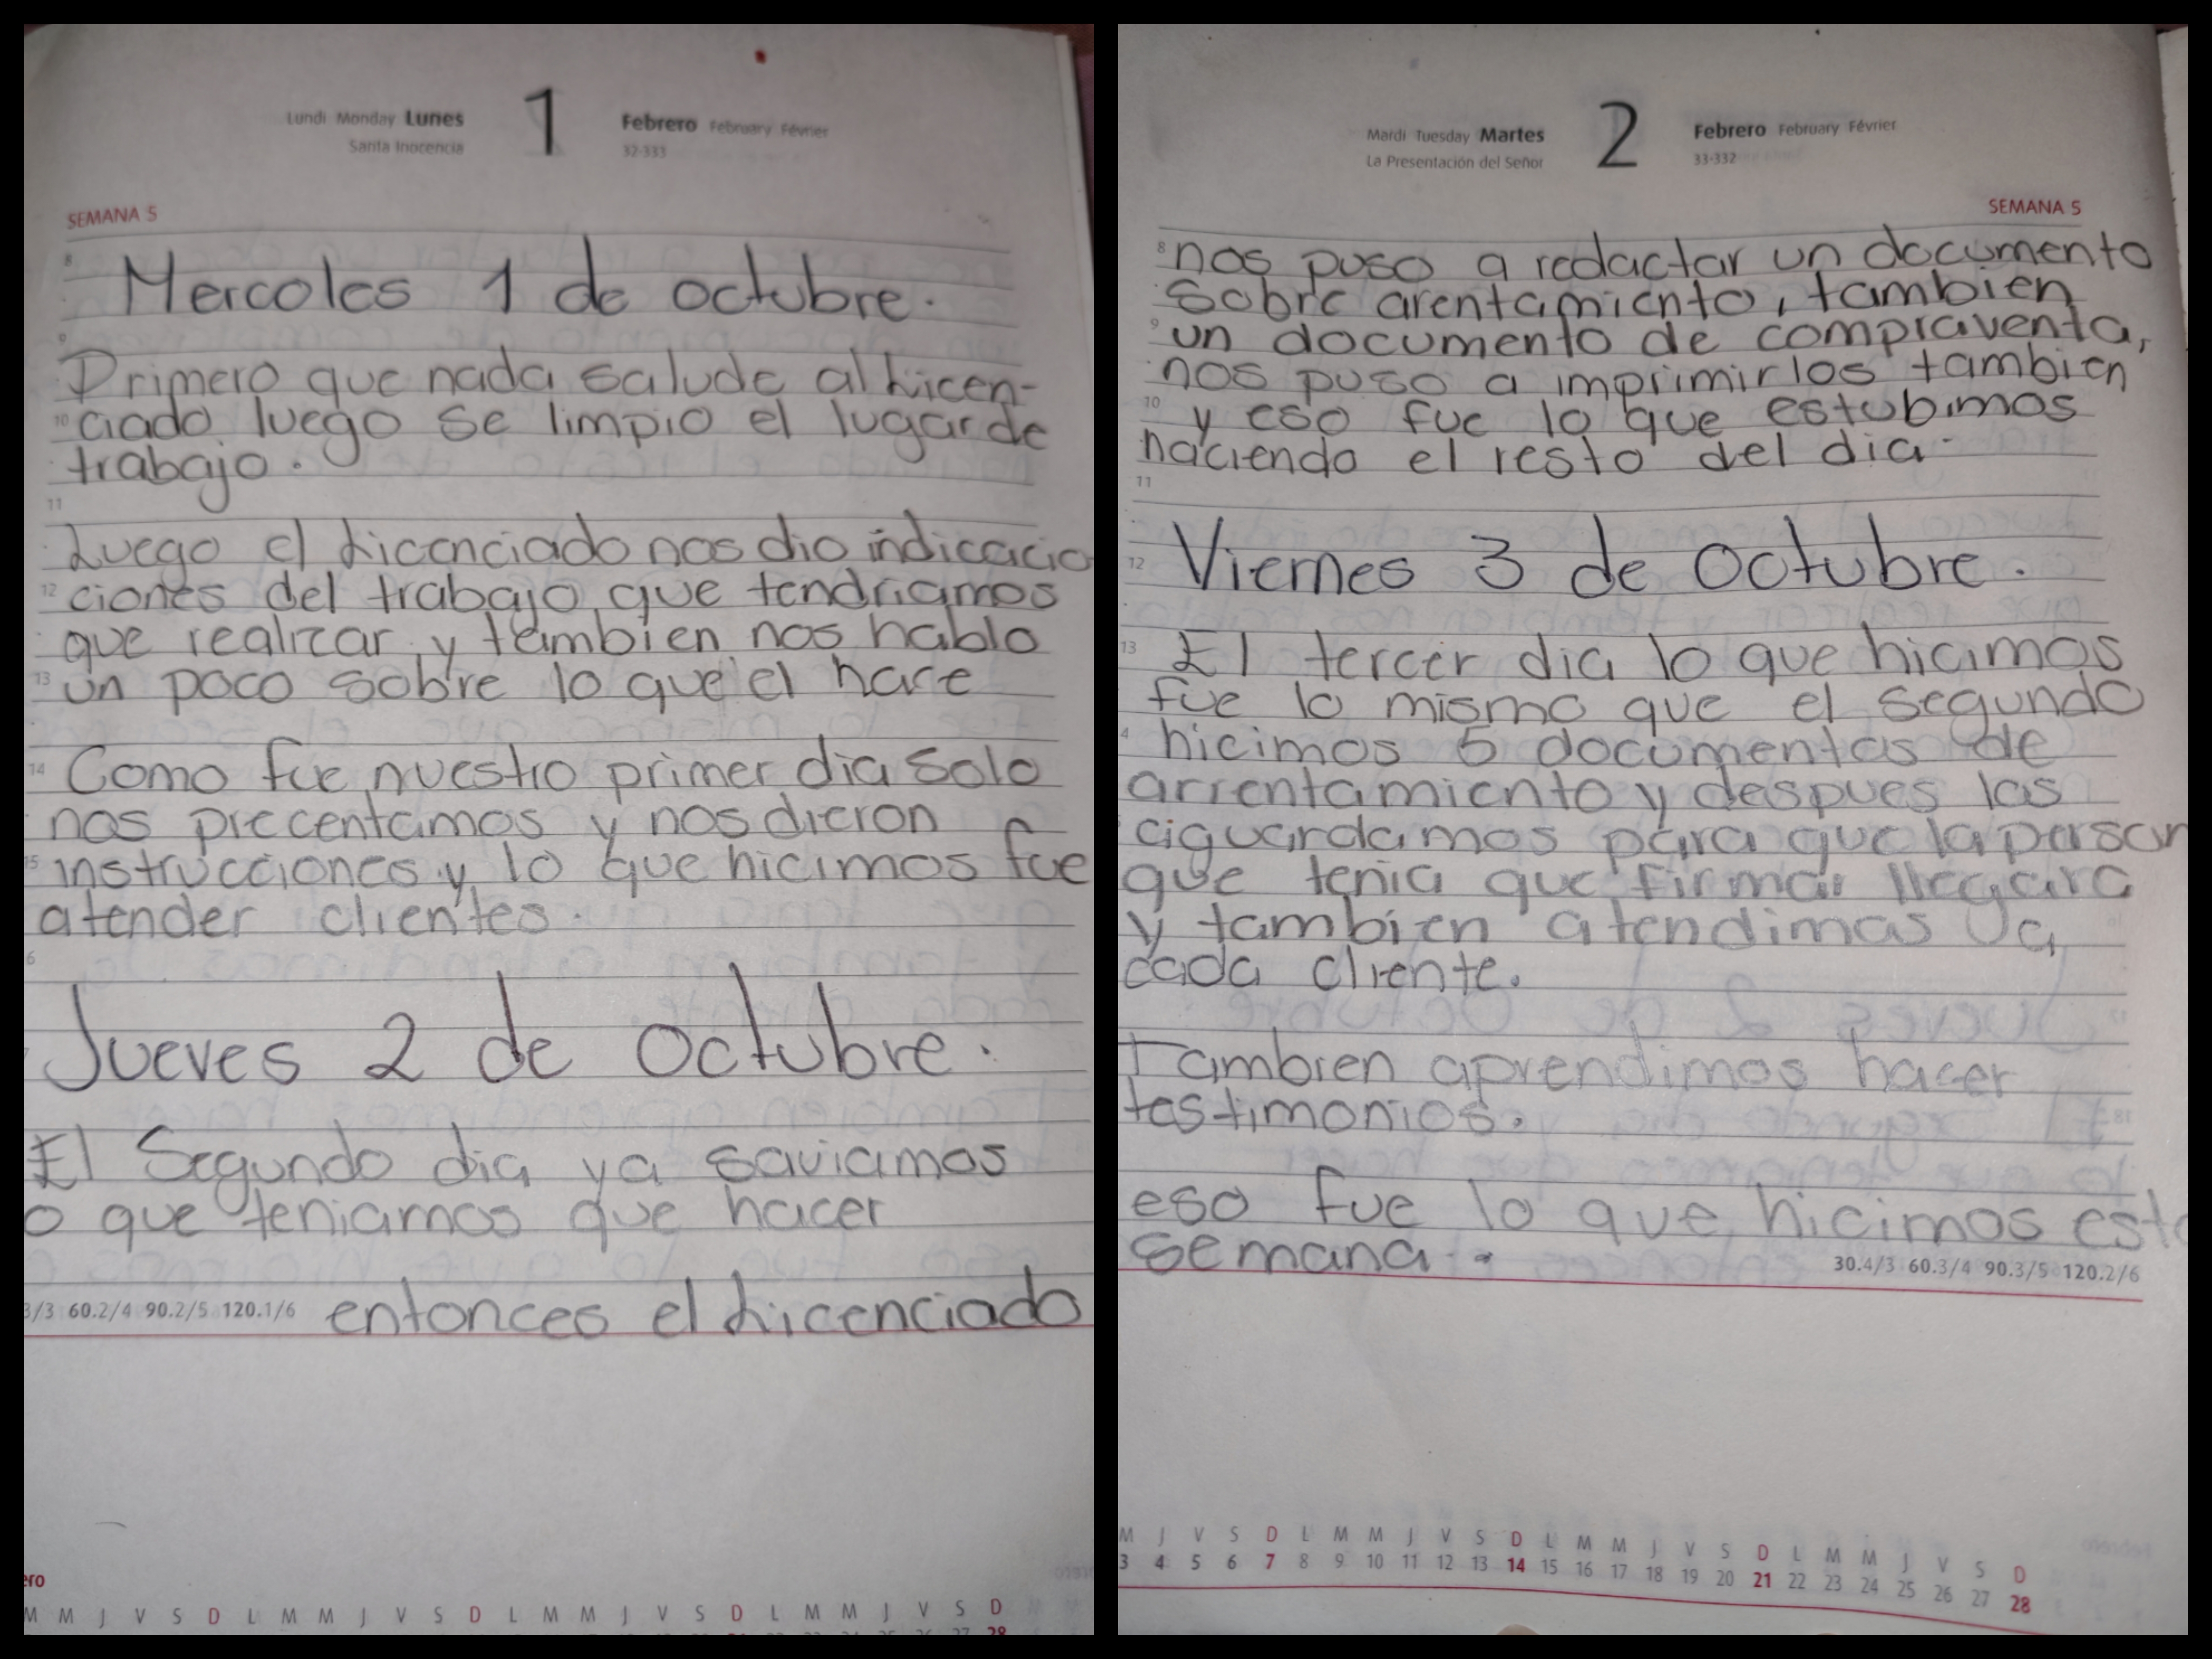 Lundi Monday Lunes 1 Febrero February Février
Santa Inocencia 32-333
SEMANA 5
8
Mercoles 1 de octubre.
9
Primero que nada salude al Licen-
10 ciado luego se limpio el lugar de
trabajo.
11
Luego el Licenciado nos dio indicacio
12 ciones del trabajo que tendriamos
que realizar y tambien nos hablo
13 un poco sobre lo que el hace
14 Como fue nuestro primer dia solo
nos precentamos y nos dieron
15 instrucciones y lo que hicimos fue
atender clientes.
6
Jueves 2 de Octubre.
El Segundo dia ya saviamos
o que teniamos que hacer
3/3 60.2/4 90.2/5 120.1/6 entonces el Licenciado
ero
M M J V S D L M M J V S D L M M J V S D L M M J V S D
28
Mardi Tuesday Martes 2 Febrero February Février
La Presentación del Señor 33-332
SEMANA 5
8 nos puso a redactar un documento
sobre arentamiento, tambien
9 un documento de compraventa,
nos puso a imprimirlos tambien
10 y eso fue lo que estubimos
haciendo el resto del dia.
11
12 Viernes 3 de Octubre.
13 El tercer dia lo que hicimos
fue lo mismo que el segundo
4 hicimos 5 documentos de
arrentamiento y despues los
aguardamos para que la person
que tenia que firmar llegara
y tambien atendimos a
cada cliente.
Tambien aprendimos hacer
testimonios.
18
eso fue lo que hicimos esta
semana.
30.4/3 60.3/4 90.3/5 120.2/6
M J V S D L M M J V S D L M M J V S D L M M J V S D
3 4 5 6 7 8 9 10 11 12 13 14 15 16 17 18 19 20 21 22 23 24 25 26 27 28